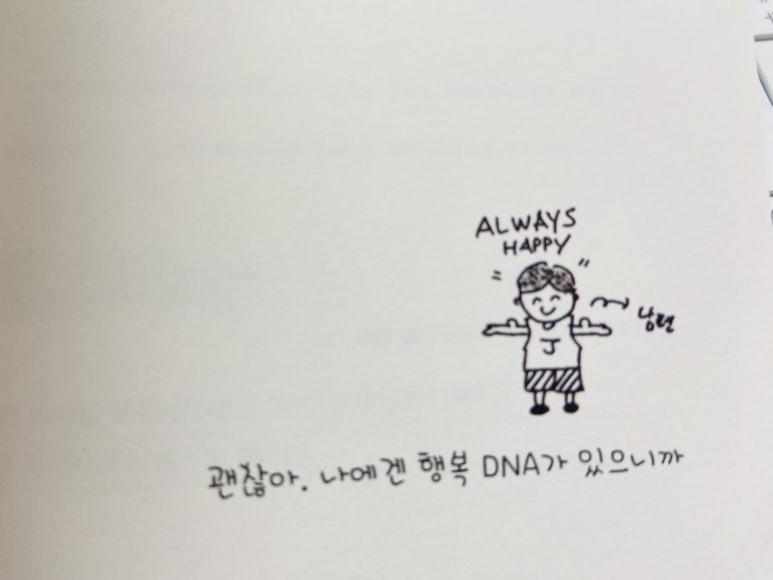 ALWAYS
HAPPY
남편
J
괜찮아. 나에겐 행복 DNA가 있으니까